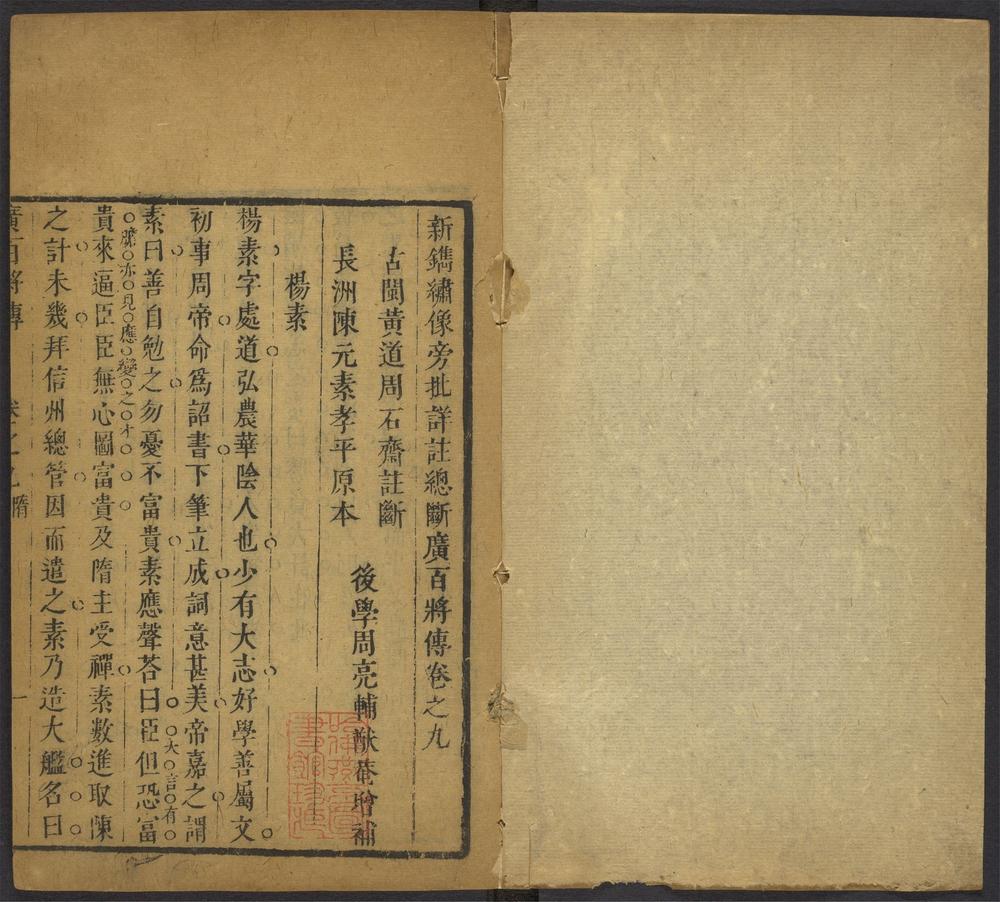 新鐫繡像旁批詳註總斷廣百將傳卷之九
古閩黃道周石齋註斷
長洲陳元素孝平原本
後學周亮輔猷菴增補
楊素
楊素字處道弘農華陰人也少有大志好學善屬文
初事周帝命爲詔書下筆立成詞意甚美帝嘉之謂
素曰善自勉之勿憂不富貴素應聲荅曰臣但恐富
大言有
膽亦見應變之才
貴來逼臣臣無心圖富貴及隋主受禪素數進取陳
之計未幾拜信州總管因而遣之素乃造大艦名曰
廣百將傳 卷之九 隋 一
哈佛燕京圖書館珍藏